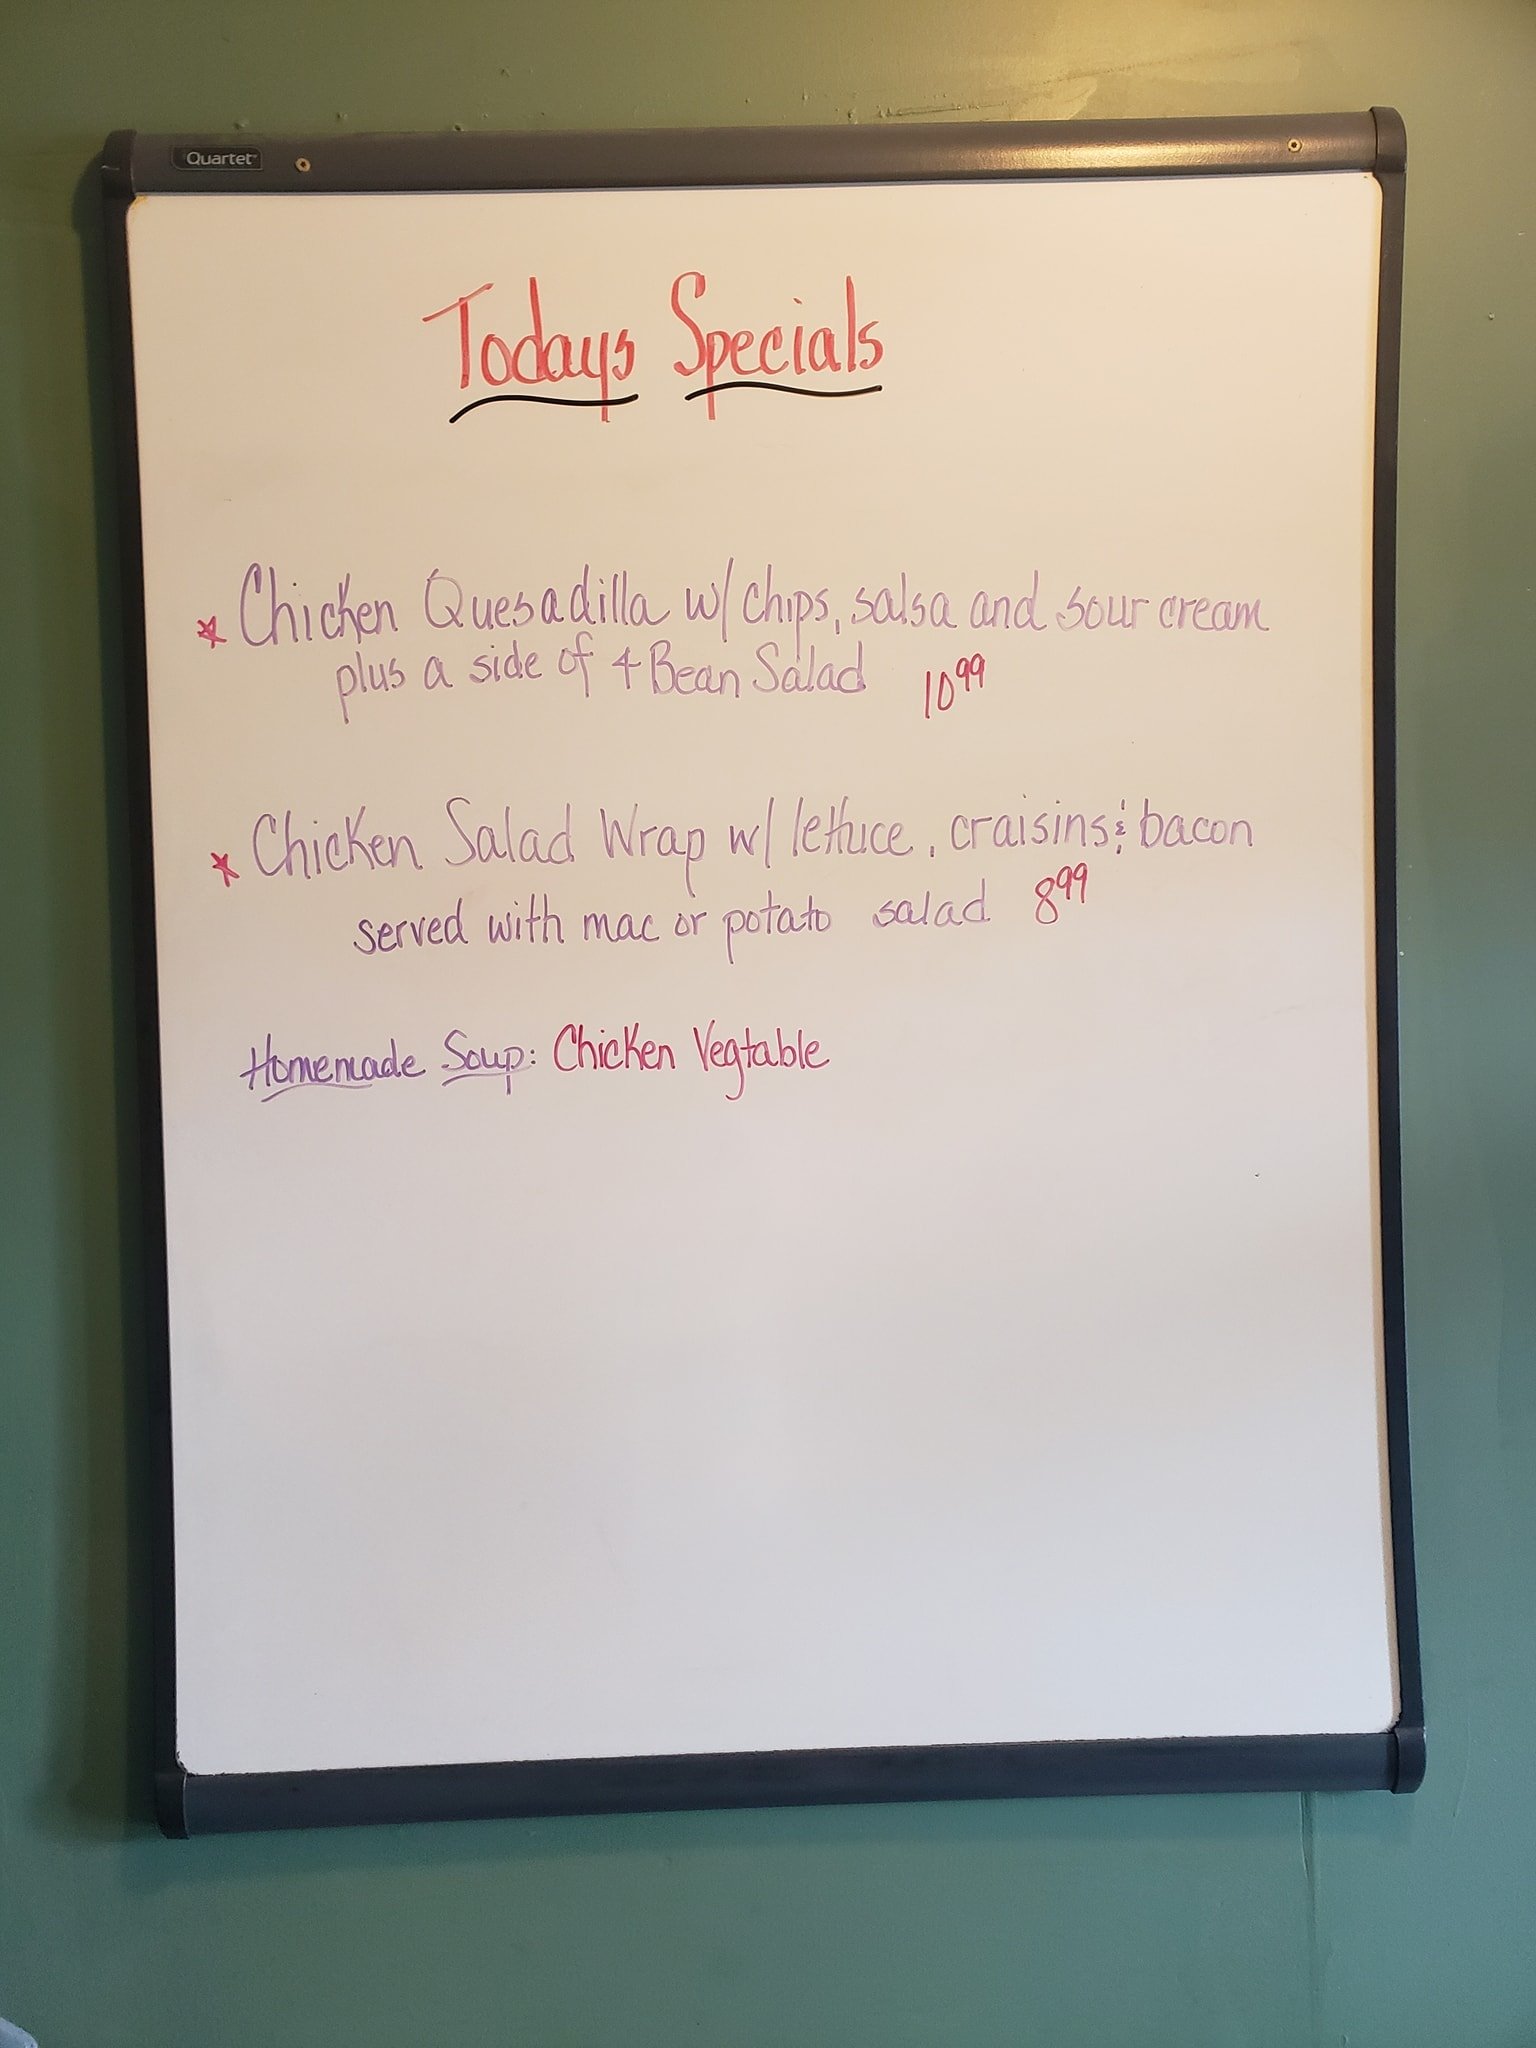 Quartet
Todays Specials
* Chicken Quesadilla w/ chips, salsa and sour cream
plus a side of 4 Bean Salad 10 99
* Chicken Salad Wrap w/ lettuce, craisins & bacon
served with mac or potato salad 8 99
Homemade Soup: Chicken Vegtable